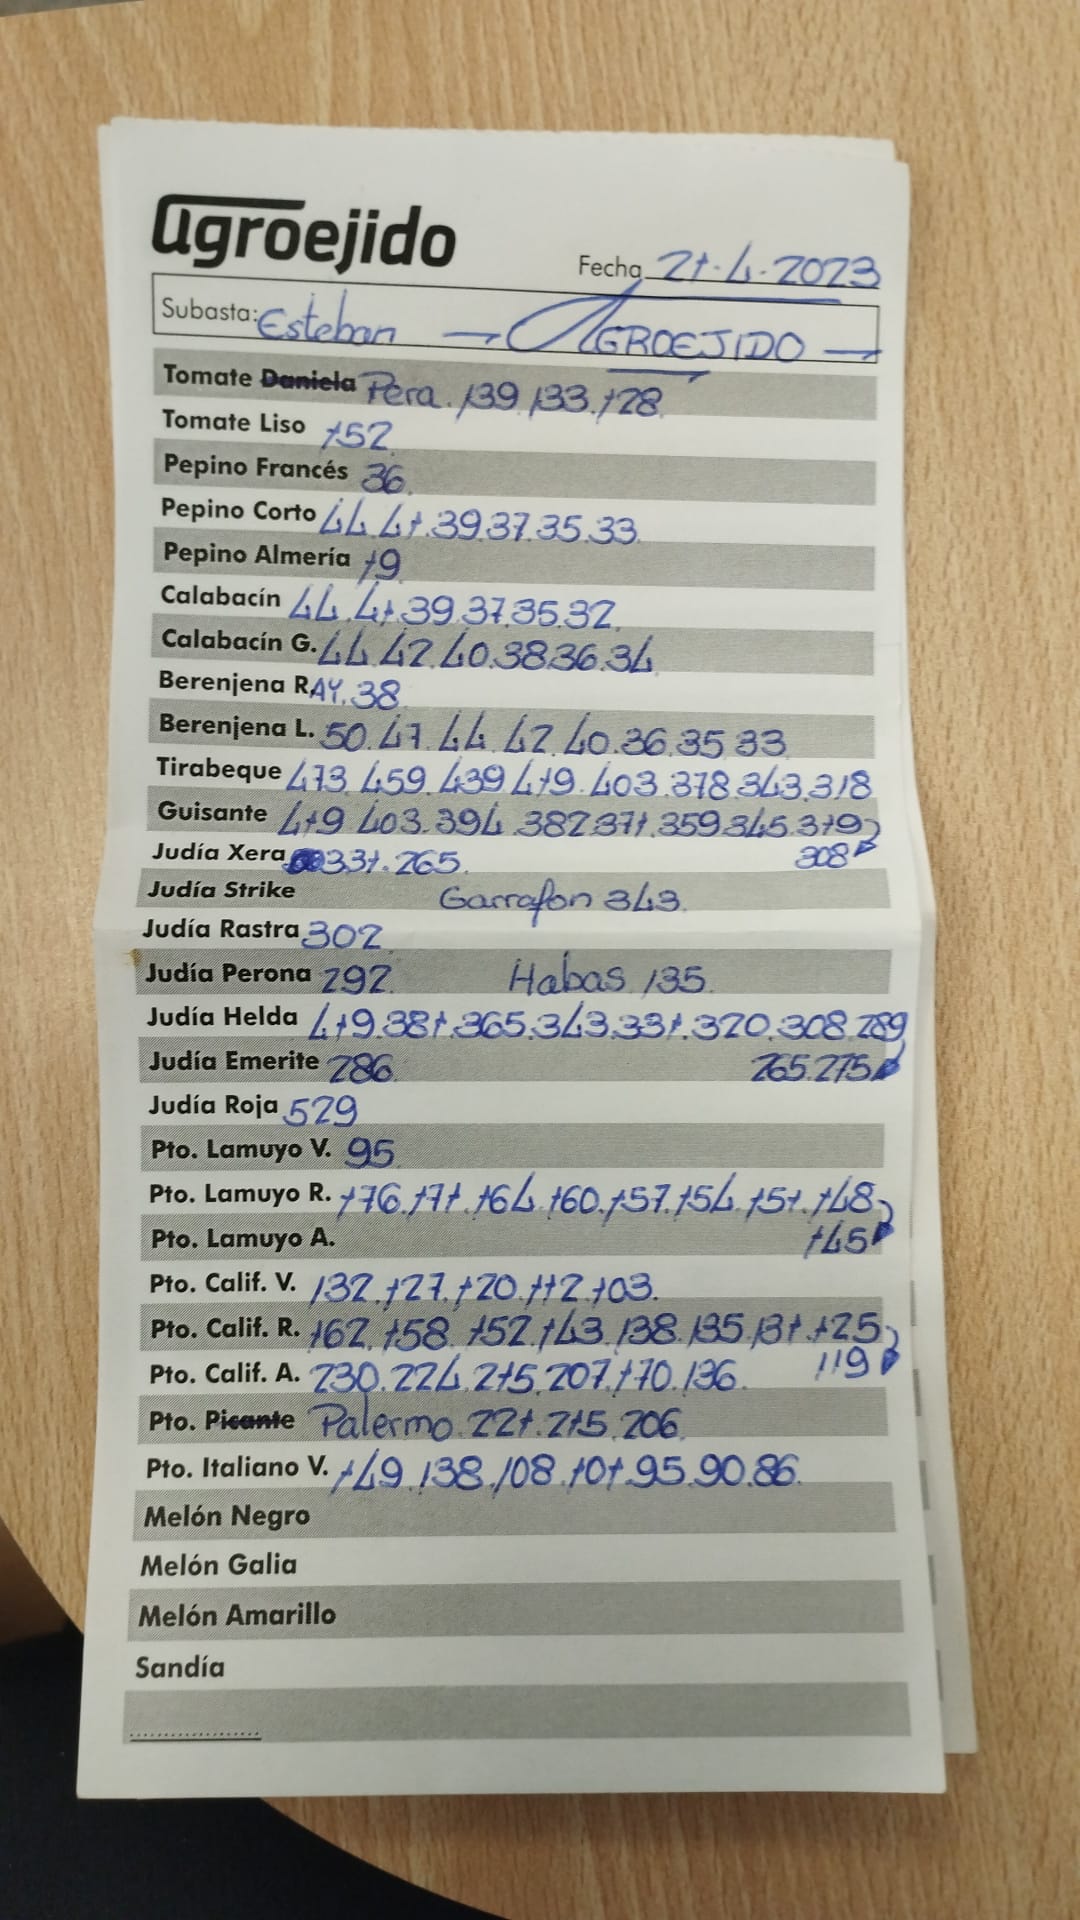 agroejido
Fecha 21-4-2023
Subasta: Esteban — AGROEJIDO —
Tomate Daniela Pera. 139.133.128
Tomate Liso 152
Pepino Francés 36.
Pepino Corto 44.41.39.37.35.33.
Pepino Almería 19
Calabacín 44.41.39.37.35.32.
Calabacín G. 44.42.40.38.36.34
Berenjena RAY. 38
Berenjena L. 50.47.44.42.40.36.35.33
Tirabeque 473.459.439.419.403.378.343.318
Guisante 419.403.394.382.371.359.345.319
308
Judía Xera 331.265.
Judía Strike Garrafon 343.
Judía Rastra 302
Judía Perona 292. Habas 135.
Judía Helda 419.381.365.343.331.320.308.289
Judía Emerite 286 265.275
Judía Roja 529
Pto. Lamuyo V. 95
Pto. Lamuyo R. 176.171.164.160.157.154.151.148
Pto. Lamuyo A. 145
Pto. Calif. V. 132.127.120.112.103.
Pto. Calif. R. 162.158.152.143.138.135.131.125
119
Pto. Calif. A. 230.224.215.207.170.136.
Pto. Picante Palermo 221.215.206
Pto. Italiano V. 149.138.108.101.95.90.86.
Melón Negro
Melón Galia
Melón Amarillo
Sandía